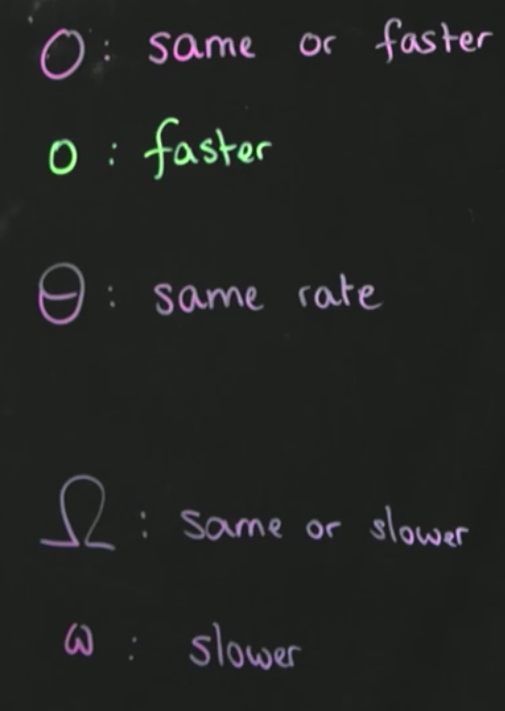 O: same or faster
o : faster
Θ : same rate
Ω : same or slower
ω : slower